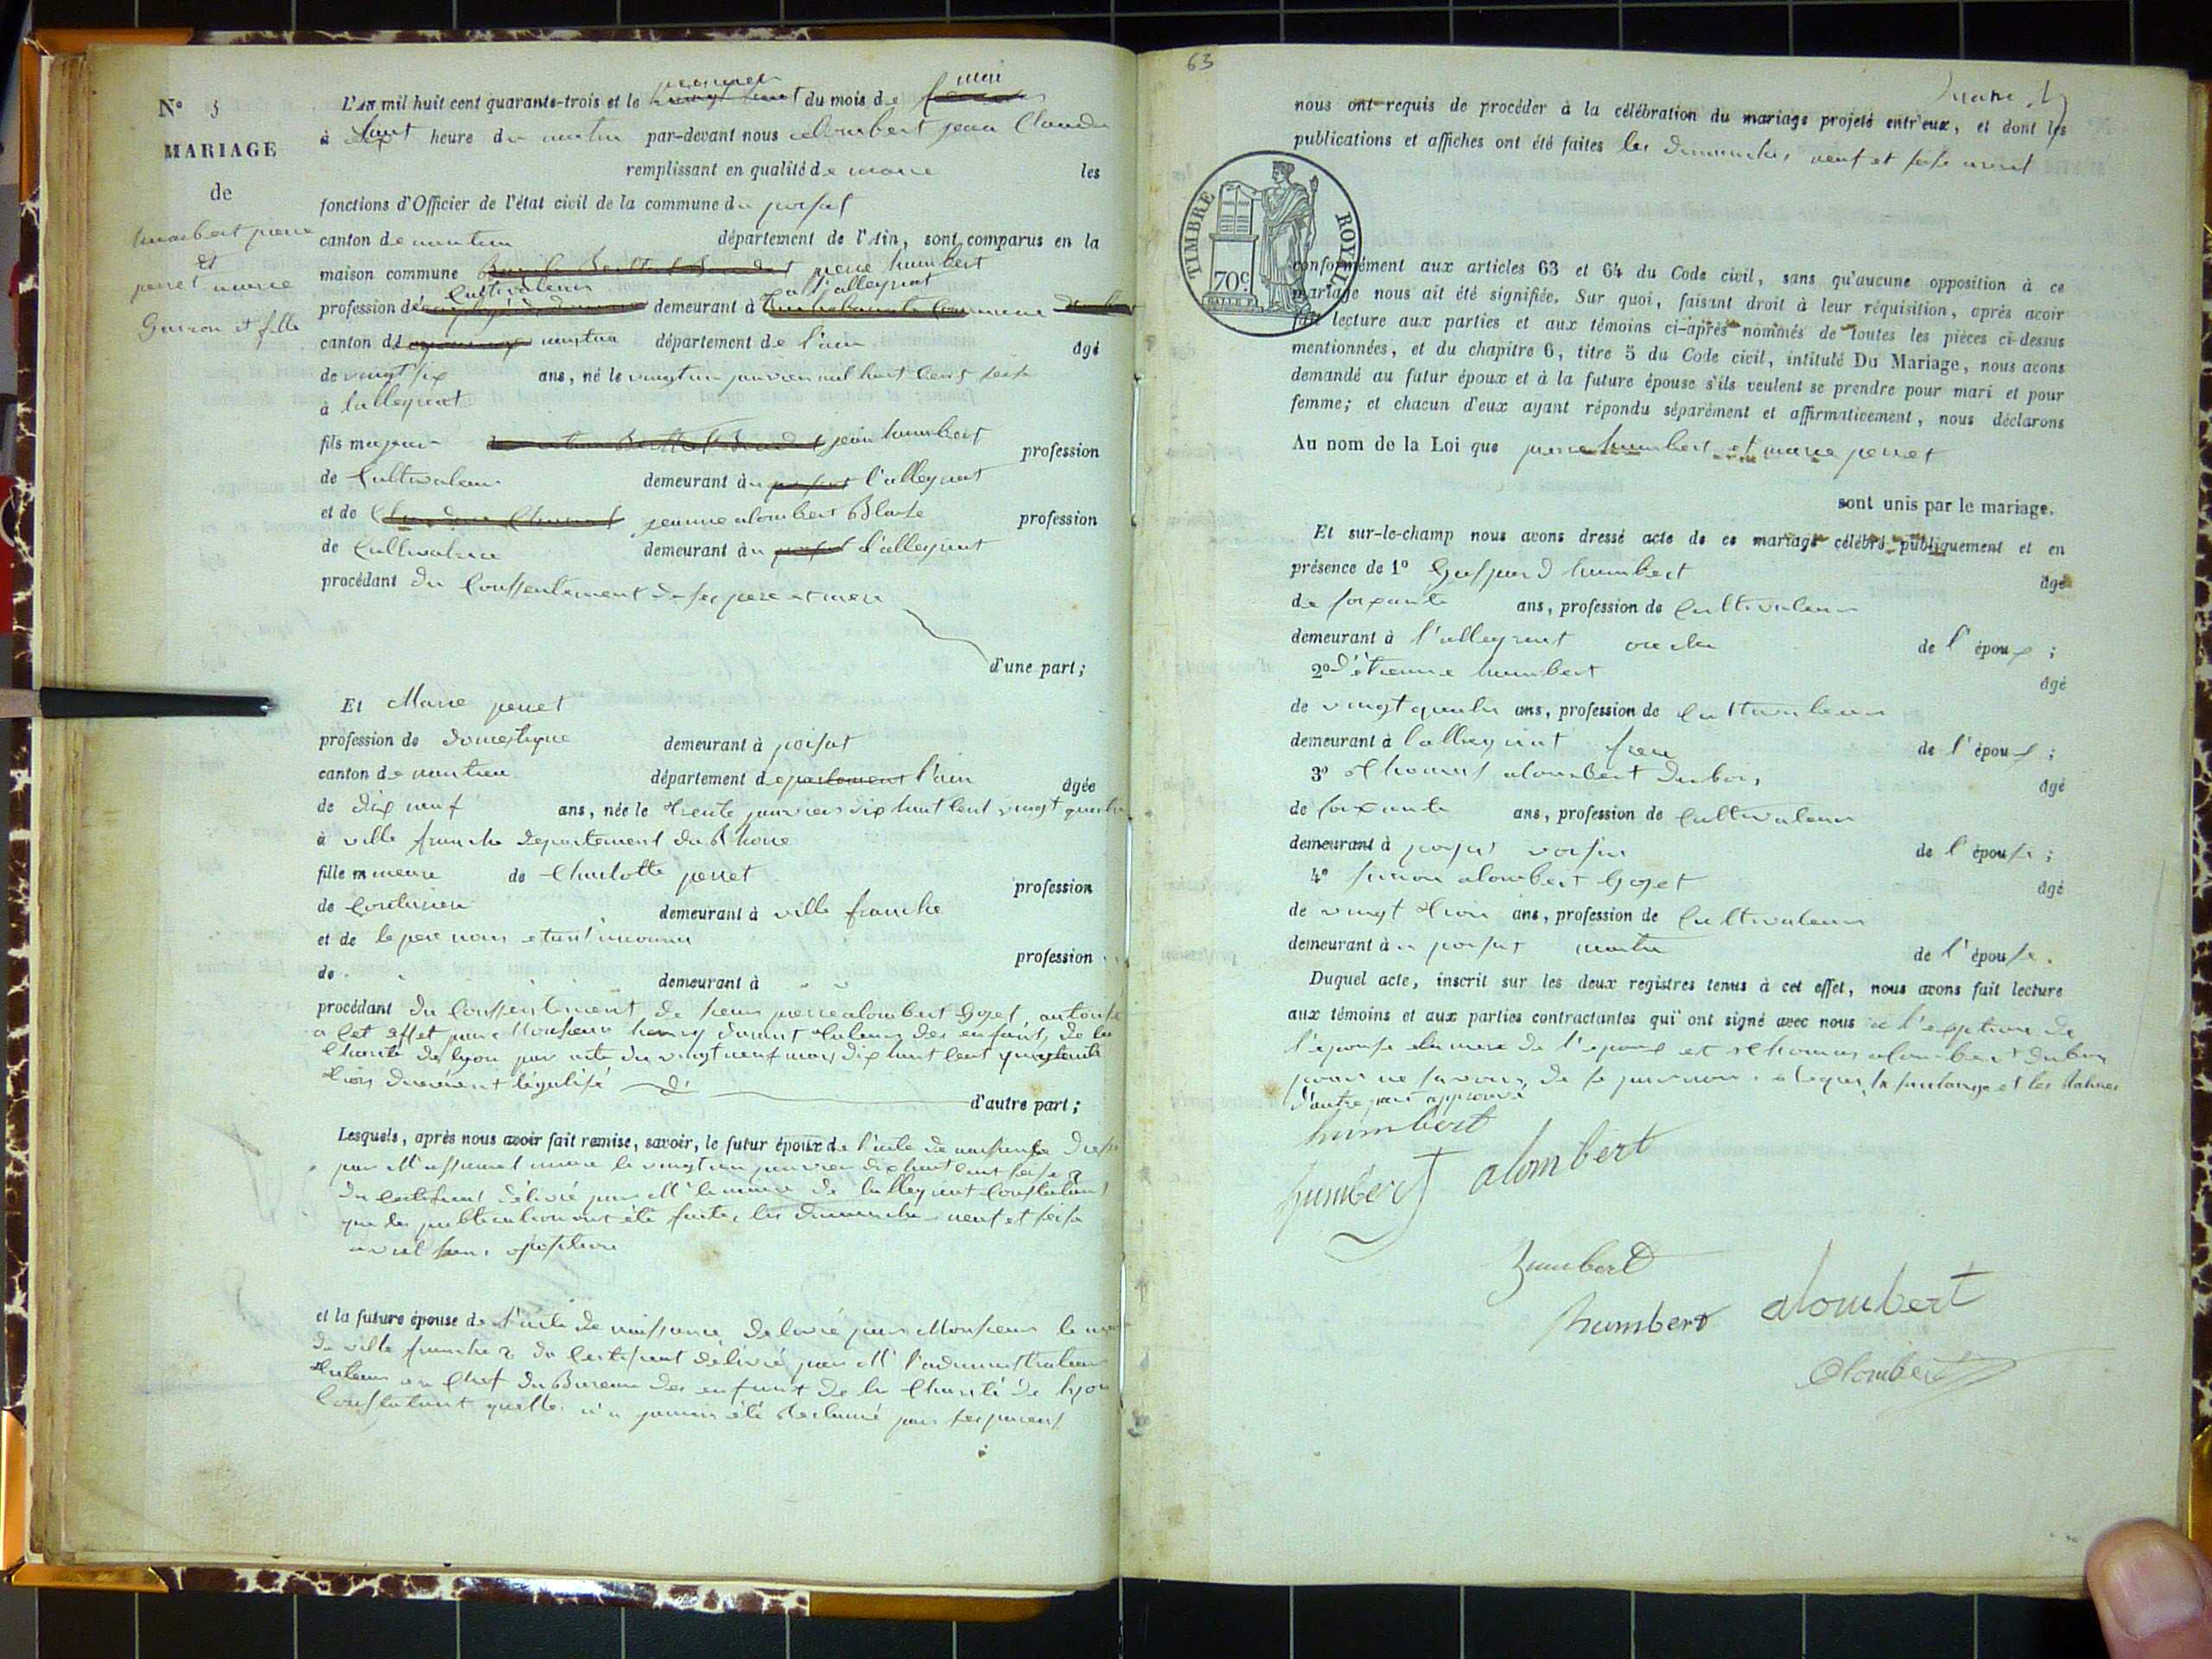 N° 5
MARIAGE
de
humbert pierre
et
perret marie
Garçon et fille
L'An mil huit cent quarante-trois et le premier du mois de mai
à sept heure du matin par-devant nous alombert jean Claude
remplissant en qualité de maire les
fonctions d'Officier de l'état civil de la commune du poizat
canton de nantua département de l'Ain, sont comparus en la
maison commune pierre humbert
profession de Cultivateur demeurant à lalleyriat
canton de nantua département de l'ain âgé
de vingt six ans, né le vingt un janvier mil huit cent seize
à lalleyriat
fils majeur jean humbert profession
de Cultivateur demeurant à l'alleyriat
et de jeanne alombert Blaise profession
de Cultivatrice demeurant à l'alleyriat
procédant du Conssentement de ses pere et mere
d'une part;
Et Marie perret
profession de domestique demeurant à poisat
canton de nantua département departement l'ain âgée
de dix neuf ans, née le trente janvier dix huit cent vingt quatre
à ville franche departement du Rhone
fille mineure de Charlotte perret profession
de Couturiere demeurant à ville franche
et de le pere nous etant inconnu profession
de demeurant à
procédant du Conssentement de sieur pierre alombert Gozet autorisé
a Cet effet par Monsieur henry durant tuteur des enfants de la
Charité de lyon par acte du vingt neuf mars dix huit cent quarante
trois duement légalisé
d'autre part;
Lesquels, après nous avoir fait remise, savoir, le futur époux de l'acte de naissance
par Mr maire le vingt un janvier dix huit cent seize 2
du Certificat délivré par Mr le maire de lalleyriat Constatant
que les publications ont été faites les dimanches neuf et seize
avril sans oposition
et la future épouse de l'acte de naissance delivré par Monsieur le
de ville franche 2 du Certificat délivré par Mr l'administrateur
tuteur en Chef du Bureau des enfants de la Charité de lyon
Constatant quelle n'a jamais été reclamé par ses parents
63
nous ont requis de procéder à la célébration du mariage projeté entr'eux, et dont les
publications et affiches ont été faites les dimanches neuf et seize avril
TIMBRE ROYAL
70c
conformément aux articles 63 et 64 du Code civil, sans qu'aucune opposition à ce
mariage nous ait été signifiée. Sur quoi, faisant droit à leur réquisition, après avoir
fait lecture aux parties et aux témoins ci-après nommés de toutes les pièces ci-dessus
mentionnées, et du chapitre 6, titre 5 du Code civil, intitulé Du Mariage, nous avons
demandé au futur époux et à la future épouse s'ils veulent se prendre pour mari et pour
femme; et chacun d'eux ayant répondu séparément et affirmativement, nous déclarons
Au nom de la Loi que pierre humbert et marie perret
sont unis par le mariage.
Et sur-le-champ nous avons dressé acte de ce mariage célébré publiquement et en
présence de 1° Gaspard humbert âgé
de soixante ans, profession de Cultivateur
demeurant à l'alleyriat oncle de l'époux;
2° étienne humbert âgé
de vingt quatre ans, profession de Cultivateur
demeurant à lalleyriat frere de l'époux;
3° thomas alombert dubois âgé
de soixante ans, profession de Cultivateur
demeurant à poizat voisin de l'épouse;
4° simon alombert Gozet âgé
de vingt trois ans, profession de Cultivateur
demeurant à poizat de l'épouse.
Duquel acte, inscrit sur les deux registres tenus à cet effet, nous avons fait lecture
aux témoins et aux parties contractantes qui ont signé avec nous a l'exption de
l'epouse la mere de l'epoux et thomas alombert dubois
pour ne savoir de ce
d'autre part approuvé
humbert
humbert alombert
humbert
humbert alombert
alombert